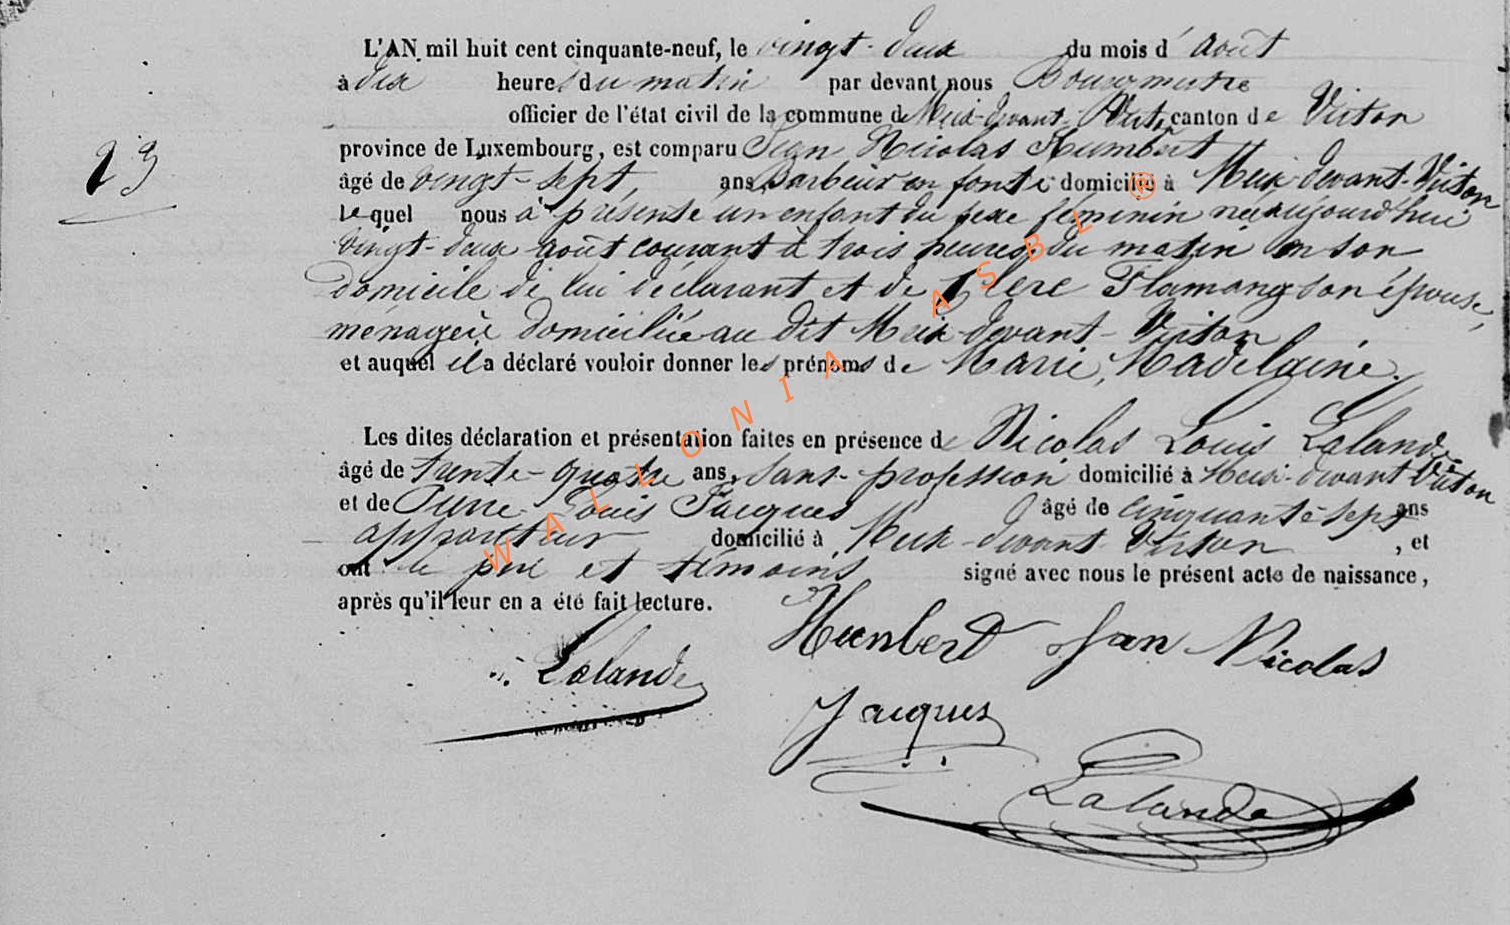 L'AN mil huit cent cinquante-neuf, le vingt-deux du mois d'août
à dix heures du matin par devant nous Bourgmestre
officier de l'état civil de la commune de Meix-devant-Virton canton de Virton
23
province de Luxembourg, est comparu Jean Nicolas Humbert
âgé de vingt-sept, ans, barbeur en fonte domicilié à Meix-devant-Virton
lequel nous a présenté un enfant du sexe féminin née aujourd'hui
vingt-deux août courant à trois heures du matin en son
domicile de lui déclarant et de Flamang son épouse,
ménagère domiciliée au dit Meix-devant-Virton
et auquel il a déclaré vouloir donner les prénoms de Marie, Madelaine.
Les dites déclaration et présentation faites en présence de Nicolas Louis Lalande
âgé de trente-quatre ans, sans profession domicilié à Meix-devant Virton
et de Pierre Louis Jacques âgé de cinquante-sept ans
appariteur domicilié à Meix-devant-Virton , et
ont le père et témoins signé avec nous le présent acte de naissance,
après qu'il leur en a été fait lecture.
Humbert Jean Nicolas
Lalande
Jacques
Lalande
WALLONIA ASBL ®